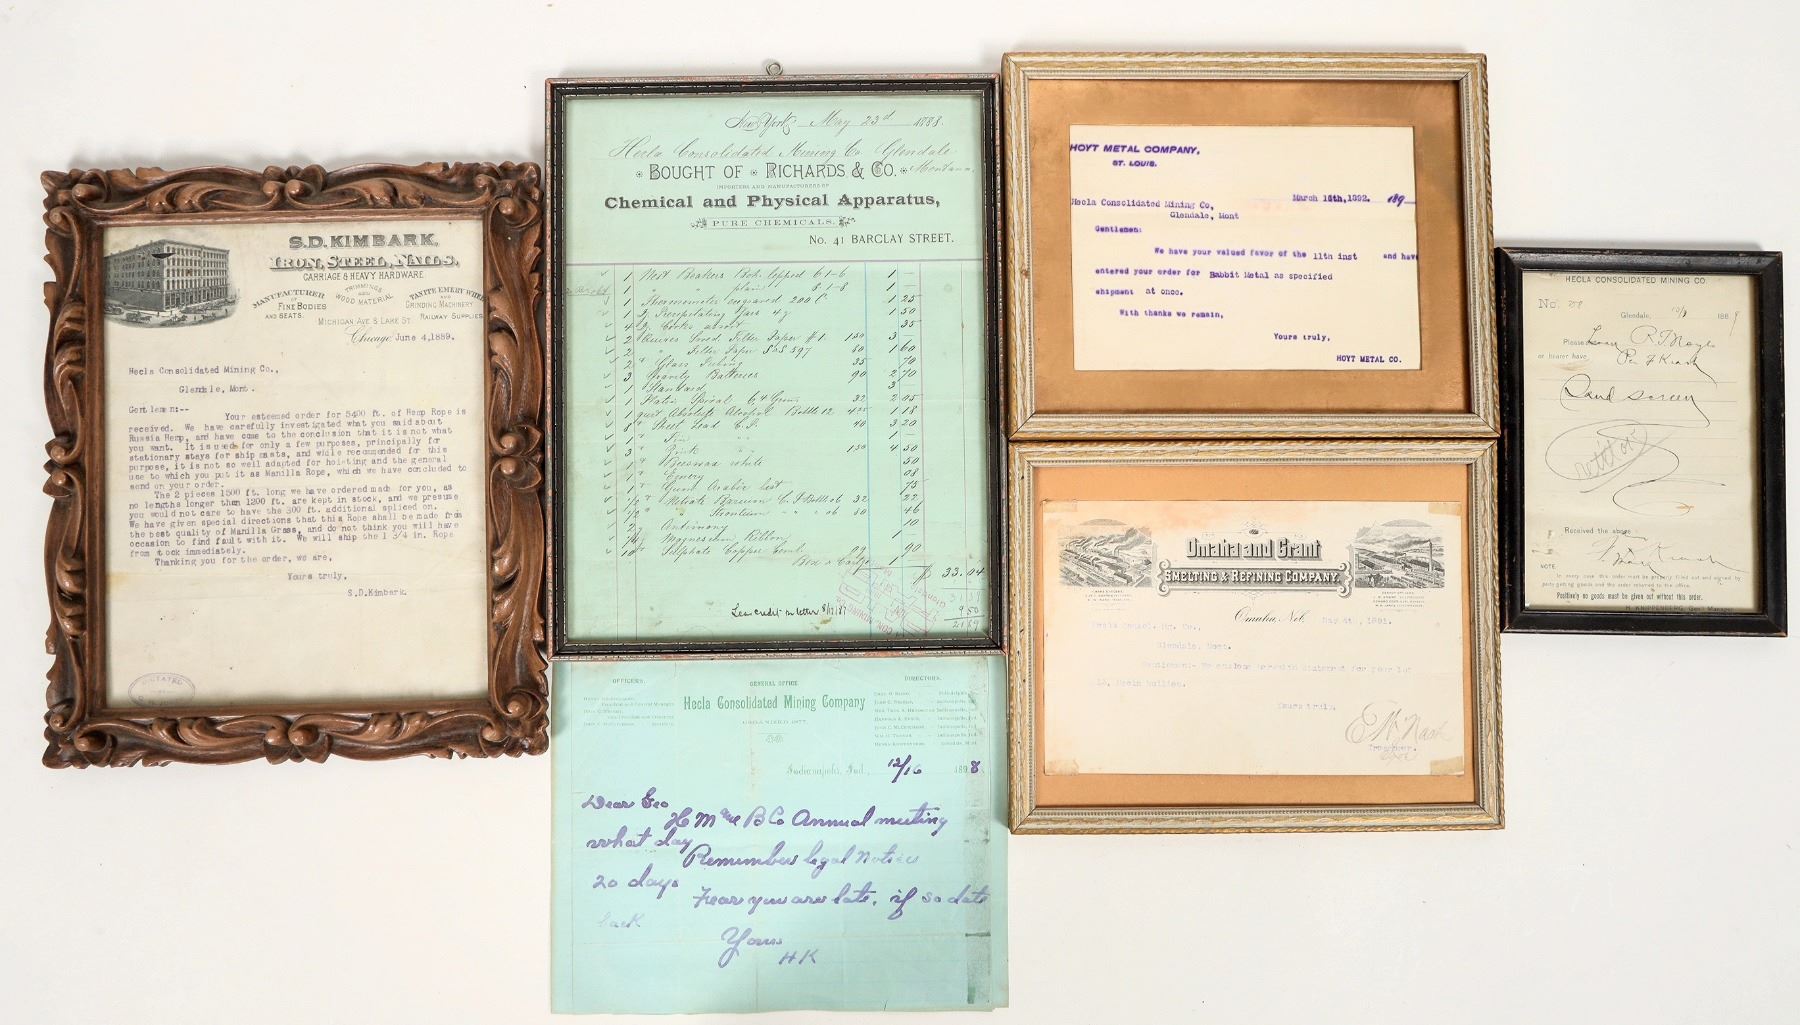 S.D. KIMBARK,
IRON, STEEL, NAILS,
CARRIAGE & HEAVY HARDWARE
MANUFACTURER OF FINE BODIES AND SEATS.
TRIMMINGS AND WOOD MATERIAL
TANITE EMERY WHEELS AND GRINDING MACHINERY
RAILWAY SUPPLIES
MICHIGAN AVE & LAKE ST.
Chicago, June 4, 1889.
Hecla Consolidated Mining Co.,
Glendale, Mont.
Gentlemen:--
Your esteemed order for 5400 ft. of Hemp Rope is
received. We have carefully investigated what you said about
Russia Hemp, and have come to the conclusion that it is not what
you want. It is used for only a few purposes, principally for
stationary stays for ship masts, and while recommended for this
purpose, it is not so well adapted for hoisting and the general
use to which you put it as Manilla Rope, which we have concluded to
send on your order.
The 2 pieces 1500 ft. long we have ordered made for you, as
no lengths longer than 1200 ft. are kept in stock, and we presume
you would not care to have the 300 ft. additional spliced on.
We have given special directions that this Rope shall be made from
the best quality of Manilla Grass, and do not think you will have
occasion to find fault with it. We will ship the 1 3/4 in. Rope
from stock immediately.
Thanking you for the order, we are,
Yours truly,
S.D.Kimbark.
DICTATED
New York May 23d 1888.
Hecla Consolidated Mining Co Glendale
Montana.
BOUGHT OF RICHARDS & CO.
IMPORTERS AND MANUFACTURERS OF
Chemical and Physical Apparatus,
PURE CHEMICALS.
No. 41 BARCLAY STREET.
1 Nest Beakers Boh. lipped 6 1-6 1 —
1 " " plain 8 1-8 1 —
1 Thermometer engraved 200 C 1 25
Precipitating Jars 1 50
Corks assort 35
2 Quires Swed. Filter Paper #1 150 3 —
2 " Filter Paper S&S 597 80 1 60
2 " Glass Tubing 35 70
3 Gravity Batteries 90 2 70
1 Standard 3 —
1 Platin Spiral 32 2 05
Absolute Alcohol Bottle 12 1 18
8 " Sheet Lead C.P. 40 3 20
1 —
3 " Zinc " 150 4 50
1 " Beeswax white 50
1 " Emery 08
1 " Gum Arabic 75
32 22
" Strontium " " 06 80 46
Antimony 10
Magnesium Ribbon
10 " Sulphate Copper 09 90
Box & Cartge 1 —
$ 33.04
Less credit pr letter
9.50
HOYT METAL COMPANY,
ST. LOUIS.
March 15th,1892. 189
Hecla Consolidated Mining Co,
Glendale, Mont
Gentlemen:
We have your valued favor of the 11th inst and have
entered your order for Babbit Metal as specified
shipment at once.
With thanks we remain,
Yours truly,
HOYT METAL CO.
HECLA CONSOLIDATED MINING CO.
No.
Glendale, 188 9
Please
or bearer have
Sand Screen
Received the above
NOTE
In every case this order must be properly filled out and signed by
party getting goods and the order returned to the office.
Positively no goods must be given out without this order.
H. KNIPPENBERG, Gen'l Manager
Omaha and Grant
SMELTING & REFINING COMPANY.
Omaha, Neb. May 4th, 1891.
Hecla Consol. Mg. Co.,
Glendale, Mont.
Gentlemen:- We enclose herewith Statement for your lot
13, Hecla bullion.
Yours truly,
E W Nash
Treasurer.
OFFICERS.
GENERAL OFFICE
DIRECTORS.
Hecla Consolidated Mining Company
ORGANIZED 1877.
Indianapolis, Ind., 12/16 1898
Dear Geo
H M & B Co Annual meeting
what day
Remember legal notice
20 days
Fear you are late, if so date
back
Yours
HK